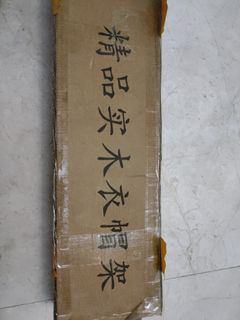 精品实木衣帽架